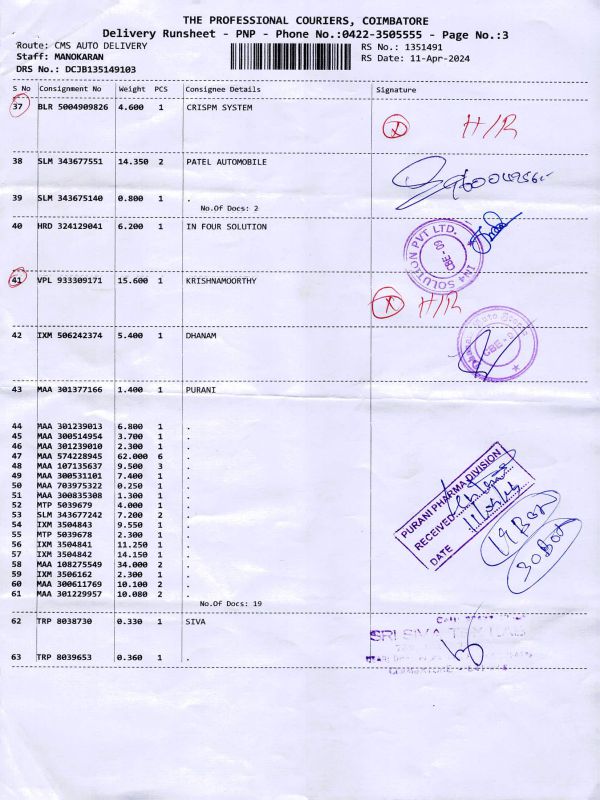 THE PROFESSIONAL COURIERS, COIMBATORE
Delivery Runsheet - PNP - Phone No.:0422-3505555 - Page No.:3
Route: CMS AUTO DELIVERY RS No.: 1351491
Staff: MANOKARAN RS Date: 11-Apr-2024
DRS No.: DCJB135149103
S No Consignment No Weight PCS Consignee Details Signature
37 BLR 5004909826 4.600 1 CRISPM SYSTEM
X H/R
38 SLM 343677551 14.350 2 PATEL AUTOMOBILE
39 SLM 343675140 0.800 1 .
No.Of Docs: 2
40 HRD 324129041 6.200 1 IN FOUR SOLUTION
IN4 SOLUTION PVT LTD. CBE - 09
41 VPL 933309171 15.600 1 KRISHNAMOORTHY
X H/R
42 IXM 506242374 5.400 1 DHANAM
43 MAA 301377166 1.400 1 PURANI
44 MAA 301239013 6.800 1 .
45 MAA 300514954 3.700 1 .
46 MAA 301239010 2.300 1 .
47 MAA 574228945 62.000 6 .
48 MAA 107135637 9.500 3 .
49 MAA 300531101 7.400 1 .
50 MAA 703975322 0.250 1 .
51 MAA 300835308 1.300 1 .
52 MTP 5039679 4.000 1 .
53 SLM 343677242 7.200 2 .
54 IXM 3504843 9.550 1 .
55 MTP 5039678 2.300 1 .
56 IXM 3504841 11.250 1 .
57 IXM 3504842 14.150 1 .
58 MAA 108275549 34.000 2 .
59 IXM 3506162 2.300 1 .
60 MAA 300611769 10.100 2 .
61 MAA 301229957 10.080 2 .
No.Of Docs: 19
PURANI PHARMA DIVISION
RECEIVED
DATE
19 Box
30 Box
62 TRP 8038730 0.330 1 SIVA
SRI SIVA
63 TRP 8039653 0.360 1 .